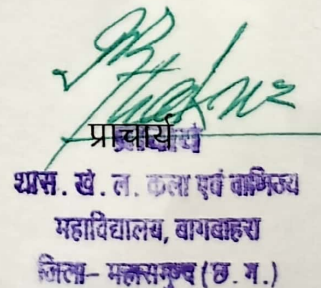 प्राचार्य
प्राचार्य
शास. खे. ल. कला एवं वाणिज्य
महाविद्यालय, बागबाहरा
जिला- महासमुन्द (छ. ग.)